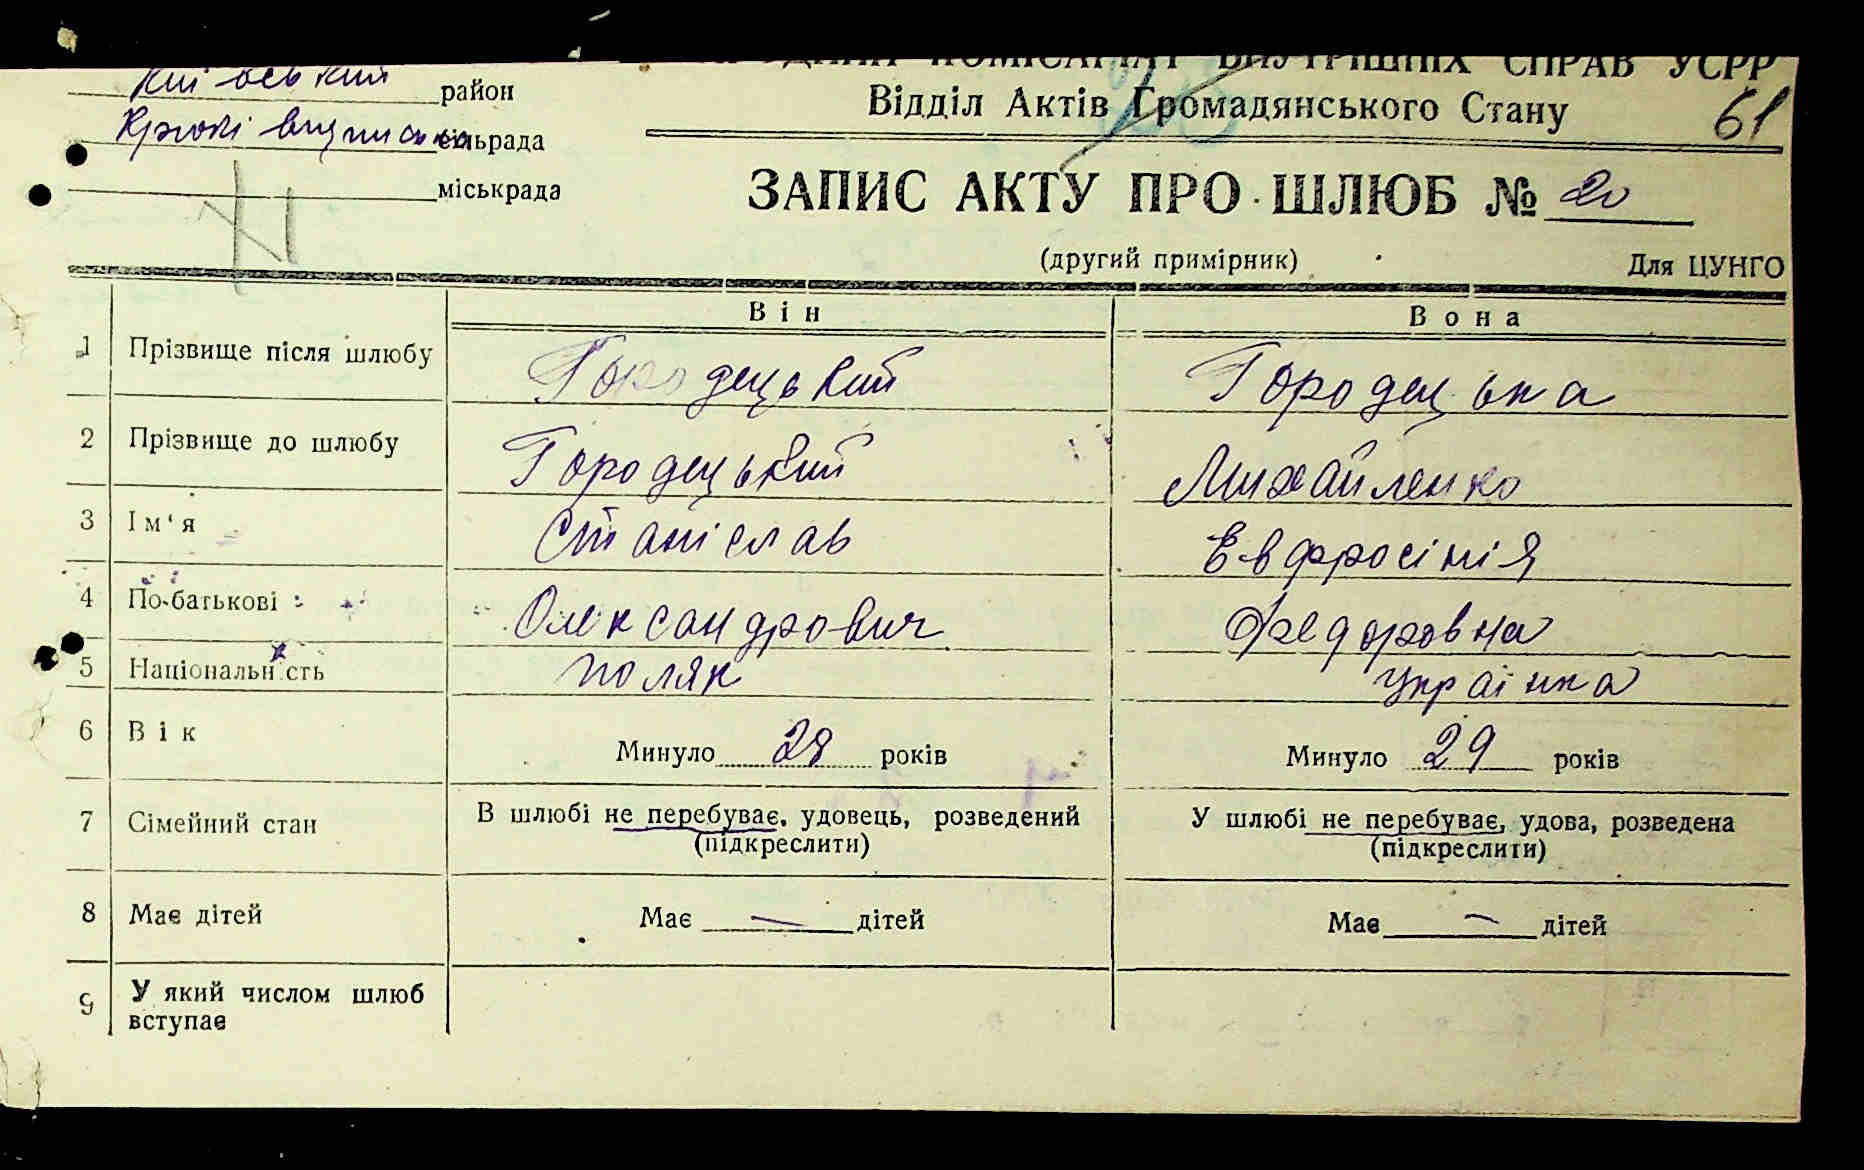 Київський район
НАРОДНИЙ КОМІСАРІАТ ВНУТРІШНІХ СПРАВ УСРР
Відділ Актів Громадянського Стану
61
сільрада
міськрада
ЗАПИС АКТУ ПРО ШЛЮБ № 20
(другий примірник)
Для ЦУНГО
Він
Вона
1 Прізвище після шлюбу Городецький Городецька
2 Прізвище до шлюбу Городецький Михайленко
3 Ім'я Станіслав Евфросінія
4 По-батькові Олександрович Федоровна
5 Національність поляк Українка
6 Вік Минуло 28 років Минуло 29 років
7 Сімейний стан В шлюбі не перебуває, удовець, розведений У шлюбі не перебуває, удова, розведена
(підкреслити) (підкреслити)
8 Має дітей Має — дітей Має — дітей
9 У який числом шлюб
вступає